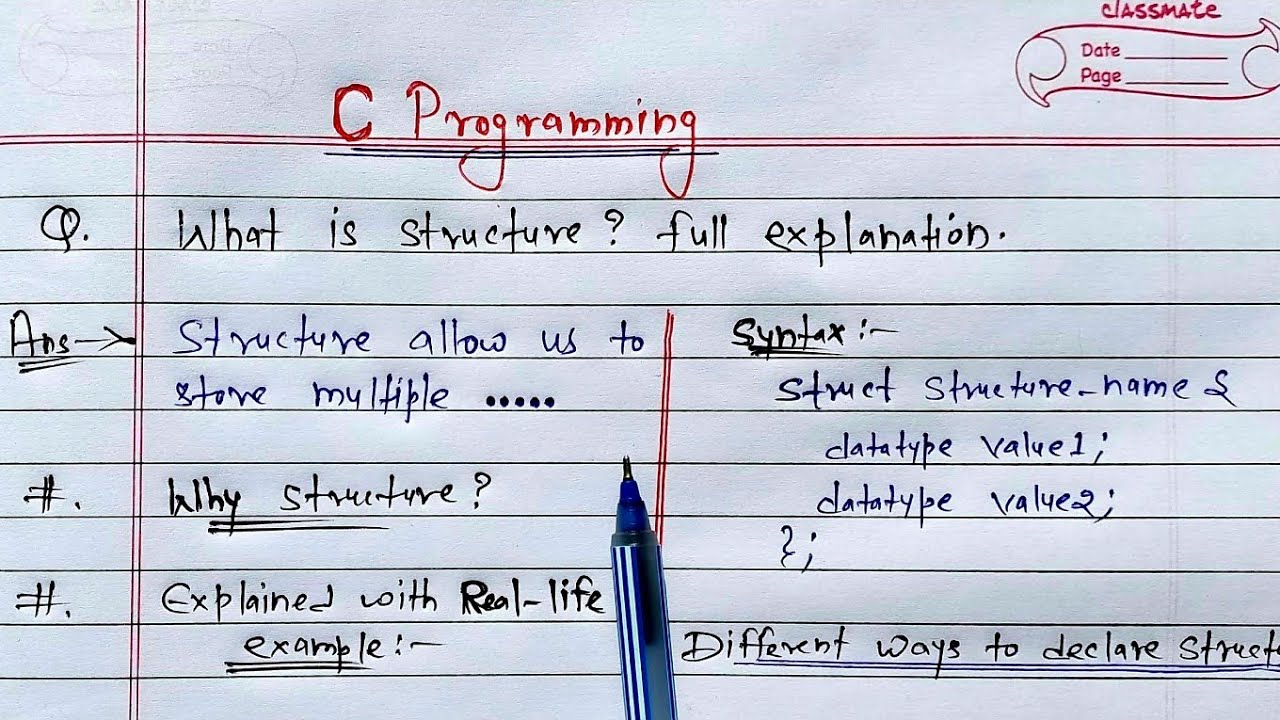 classmate
Date
Page
C Programming
Q. What is structure? full explanation.
Ans→ Structure allow us to
store multiple .....
#. Why structure?
#. Explained with Real-life
example:-
Syntax:-
Struct Structure_name {
datatype value1;
datatype value2;
};
Different ways to declare Struct